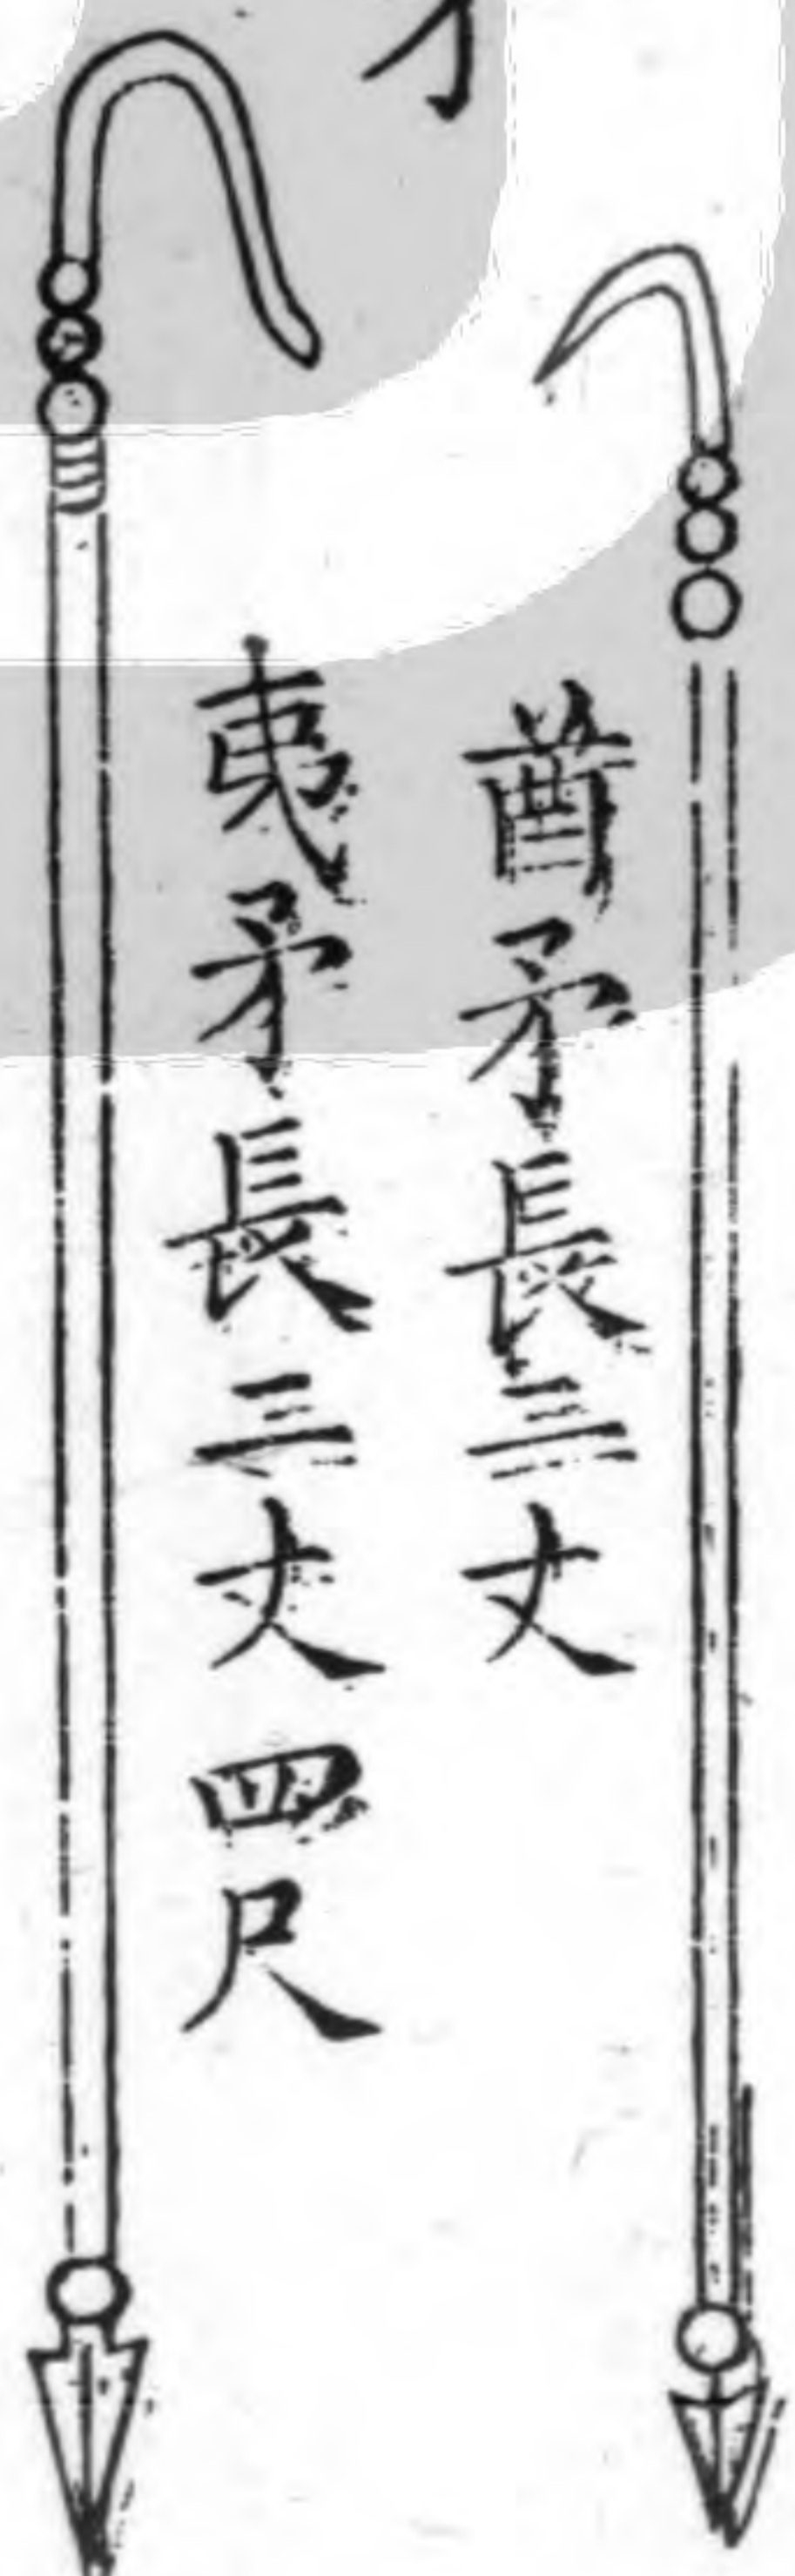 酋矛長三丈
夷矛長三丈四尺